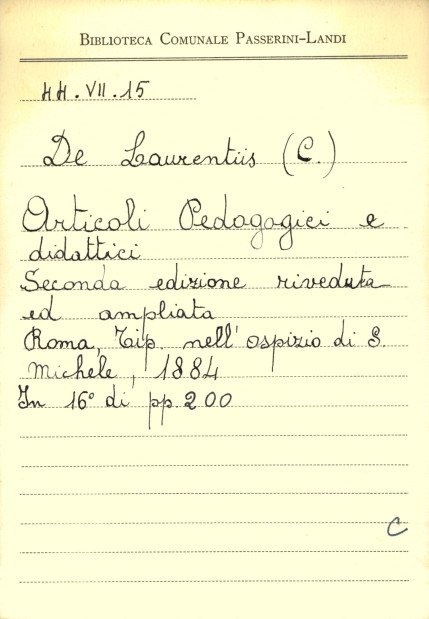 BIBLIOTECA COMUNALE PASSERINI-LANDI
HH.VII.15
De Laurentiis (C.)
Articoli Pedagogici e
didattici
Seconda edizione riveduta
ed ampliata
Roma, Tip. nell'ospizio di S.
Michele, 1884
In 16° di pp. 200
C